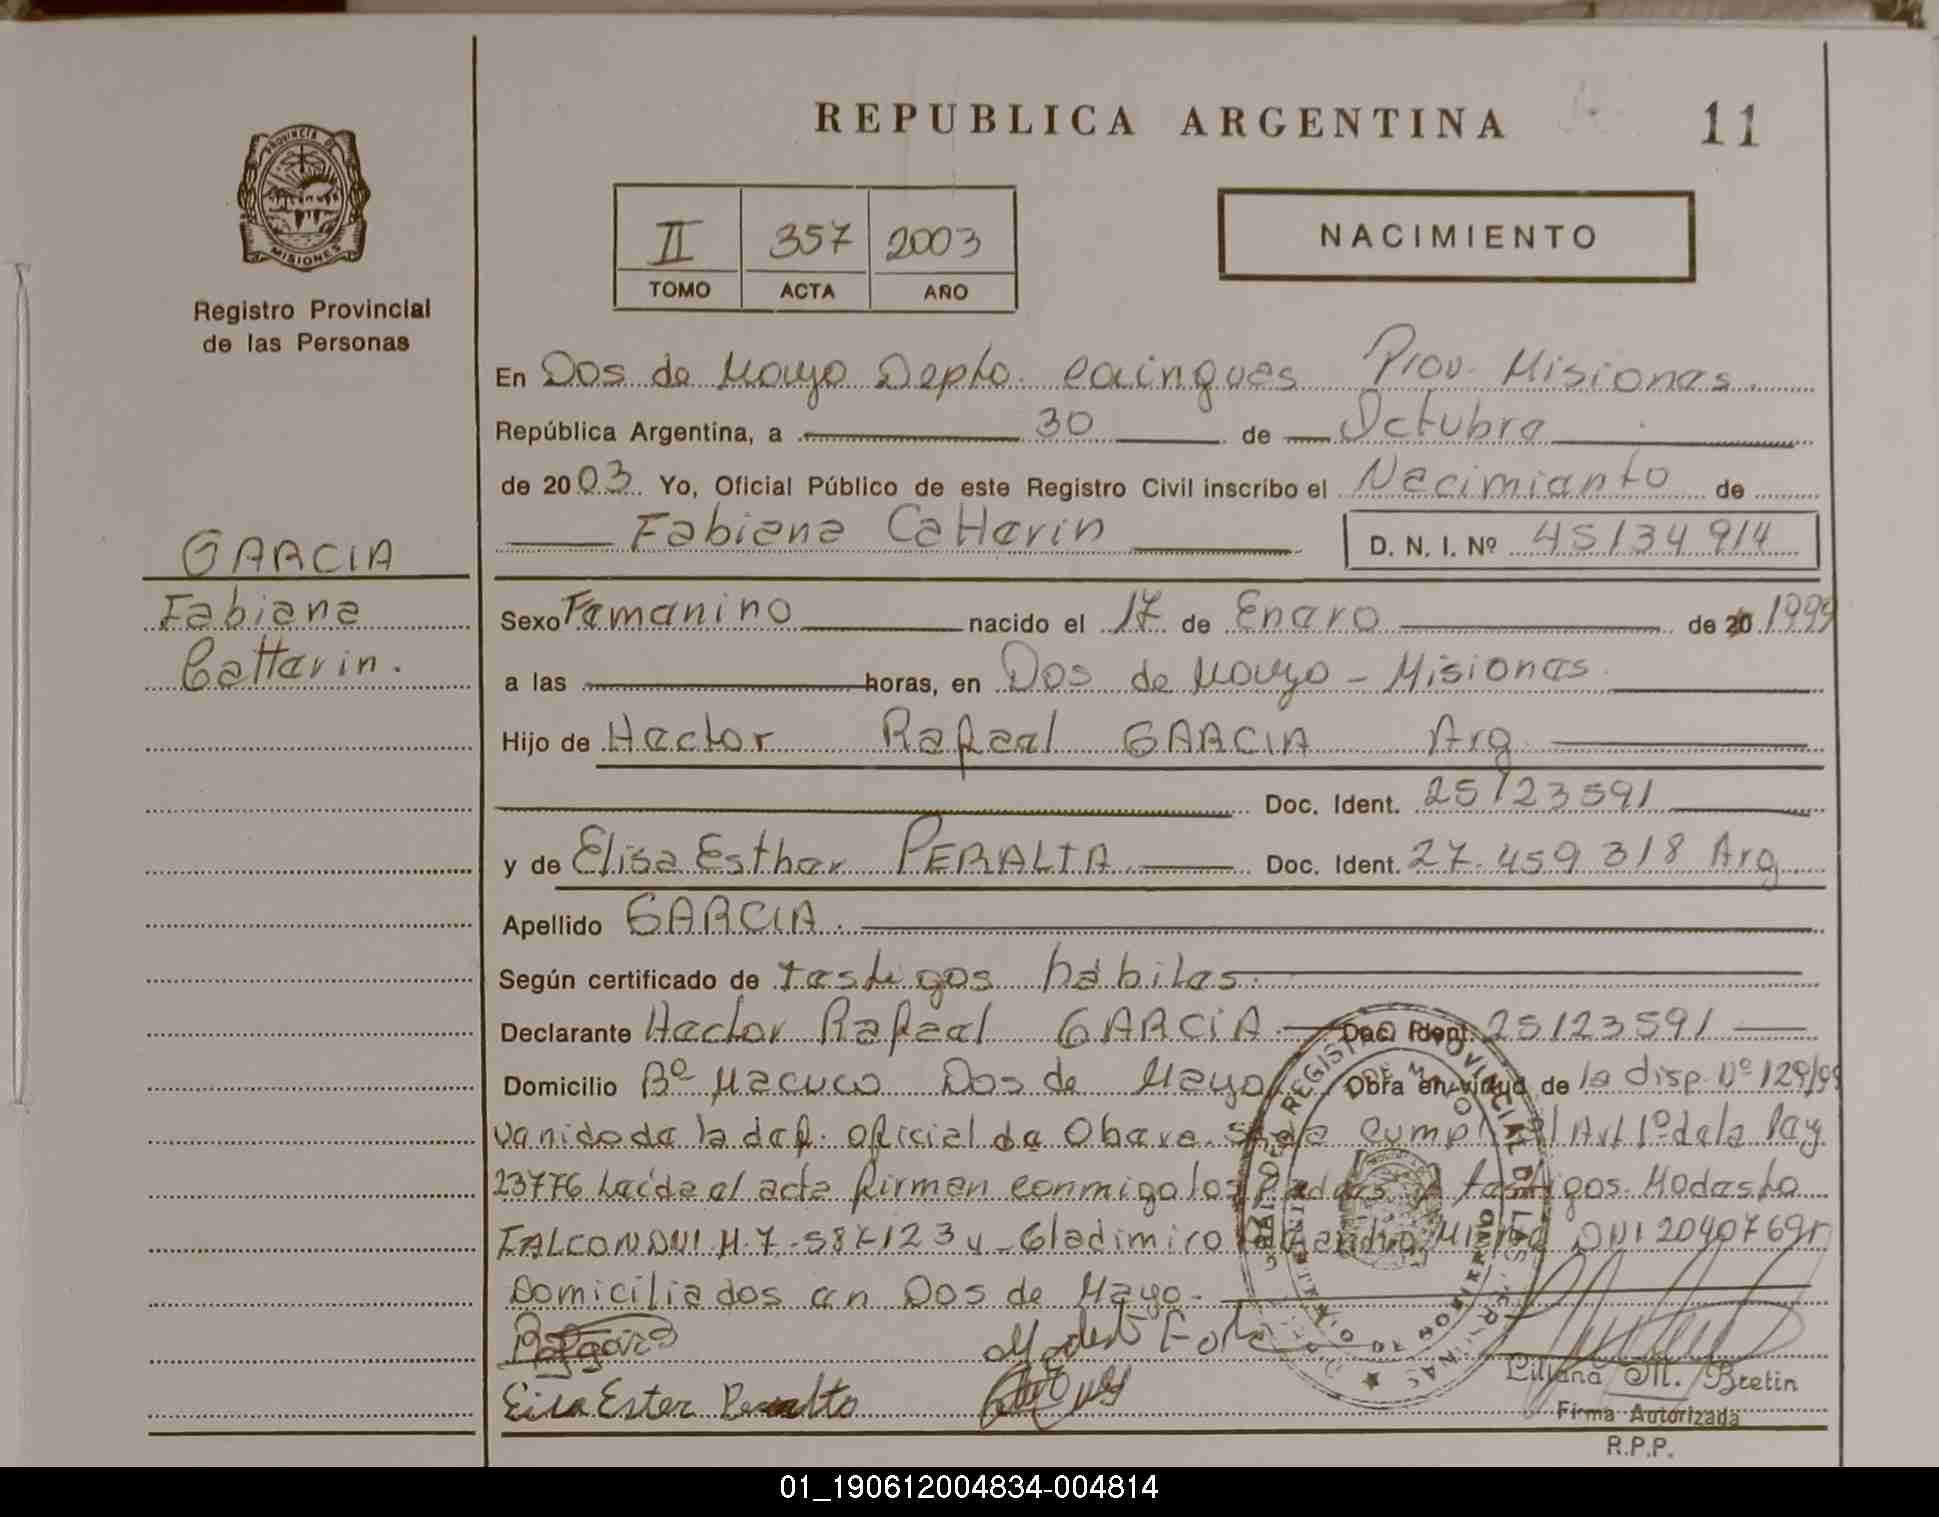 REPUBLICA ARGENTINA 11
PROVINCIA DE
MISIONES
Registro Provincial
de las Personas
II 357 2003
TOMO ACTA AÑO
NACIMIENTO
En Dos de Mayo Depto. Cainguas Prov. Misiones
República Argentina, a 30 de Octubre
de 2003 Yo, Oficial Público de este Registro Civil inscribo el Nacimiento de
Fabiana Catterin D. N. I. Nº 45134914
GARCIA
Fabiana
Catterin.
Sexo Femenino nacido el 17 de Enero de 20 1999
a las horas, en Dos de Mayo - Misiones
Hijo de Hector Rafael GARCIA Arg
Doc. Ident. 25123591
y de Elisa Esther PERALTA Doc. Ident. 27.459.318 Arg
Apellido GARCIA.
Según certificado de testigos hábiles.
Declarante Hector Rafael GARCIA Doc. Ident. 25123591
Domicilio Bº Macuco Dos de Mayo Obra en virtud de la disp. Nº 129/99
venido de la del. oficial de Obera. Se da cumpl. al Art 1º de la Ley
23776 Leída el acta firman conmigo los Padres y testigos. Modesto
FALCON DNI M.7.587.123 y Gladimiro DNI 2040769
Domiciliados en Dos de Mayo.
Modest
Elisa Ester Peralta
Liliana M. Bretin
Firma Autorizada
R.P.P.
REGISTRO PROVINCIAL DE LAS
01_190612004834-004814